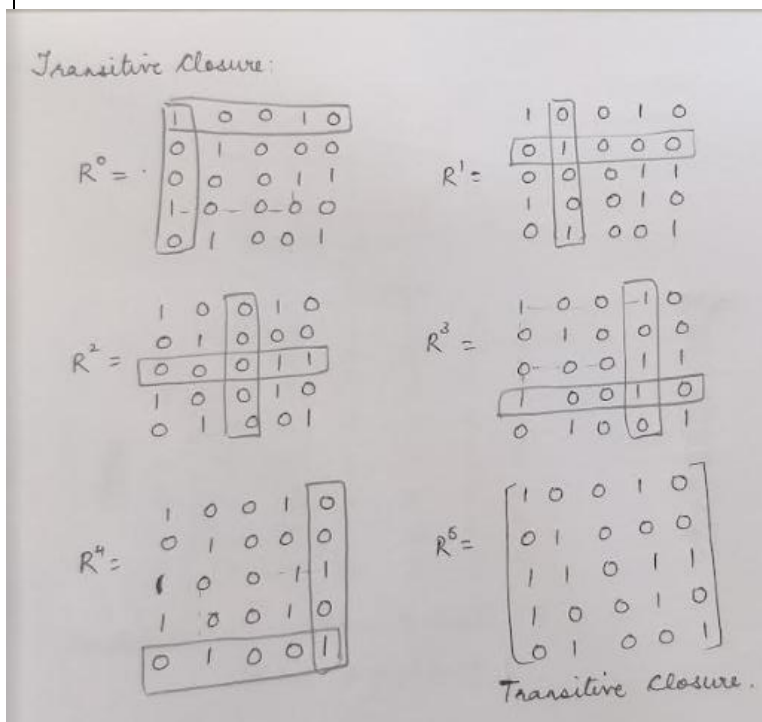 Transitive Closure:
R⁰ =
1 0 0 1 0
0 1 0 0 0
0 0 0 1 1
1 0 0 0 0
0 1 0 0 1
R¹ =
1 0 0 1 0
0 1 0 0 0
0 0 0 1 1
1 0 0 1 0
0 1 0 0 1
R² =
1 0 0 1 0
0 1 0 0 0
0 0 0 1 1
1 0 0 1 0
0 1 0 0 1
R³ =
1 0 0 1 0
0 1 0 0 0
0 0 0 1 1
1 0 0 1 0
0 1 0 0 1
R⁴ =
1 0 0 1 0
0 1 0 0 0
1 0 0 1 1
1 0 0 1 0
0 1 0 0 1
R⁵ =
1 0 0 1 0
0 1 0 0 0
1 1 0 1 1
1 0 0 1 0
0 1 0 0 1
Transitive Closure.